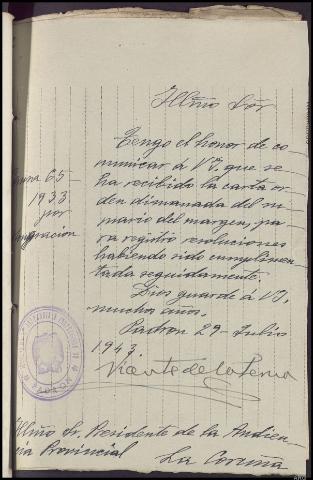 Illmo Sór
Tengo el honor de co-
municar á V.I. que se
ha recibido la carta or-
den dimanada del su-
mario del margen, pa-
ra registro resoluciones
habiendo sido cumplimen-
tada seguidamente.
Dios guarde á V.I.
muchos años.
Padron 29 - Julio
1943.
Vicente de la Pena
65
1933
por
Illmo Sr. Presidente de la Audien-
Provincial
La Coruña